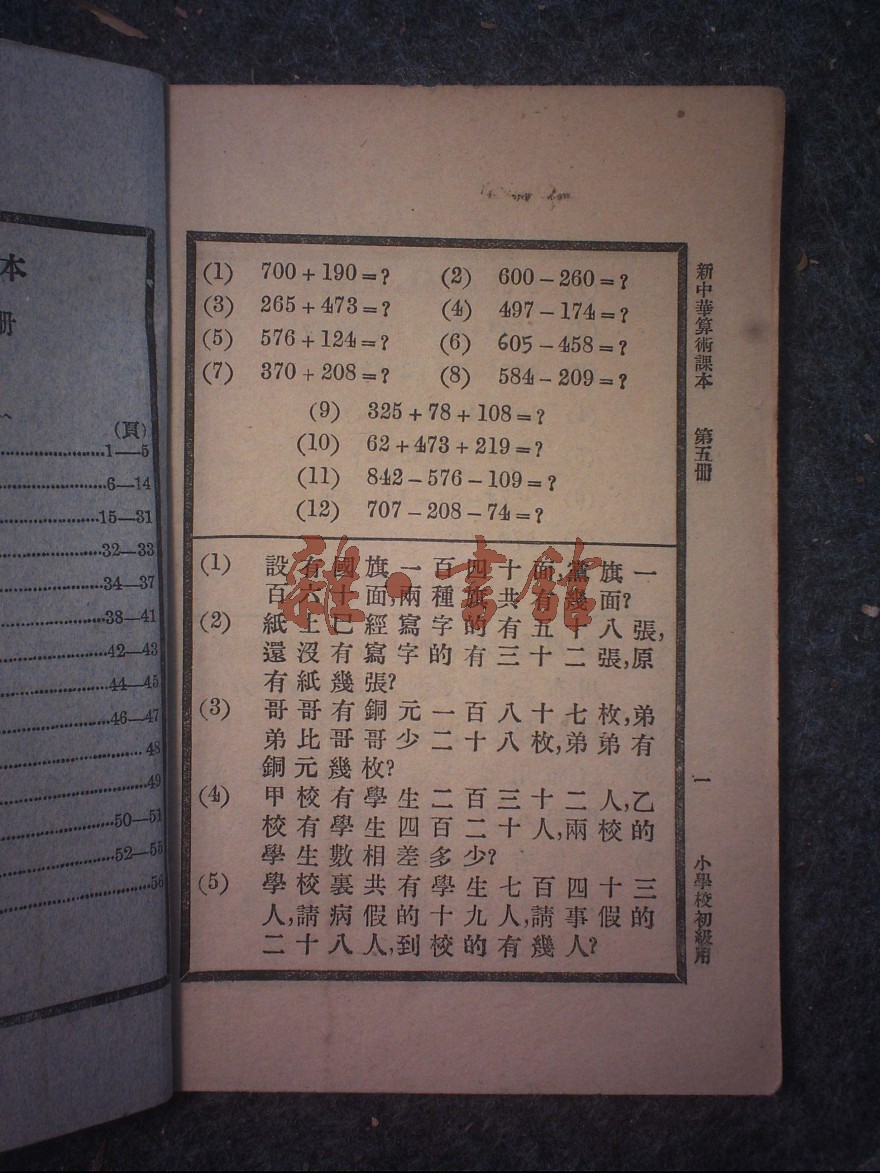 本
册
(頁)
1—5
6—14
15—31
32—33
34—37
38—41
42—43
44—45
46—47
48
49
50—51
52—55
56
(1) 700+190=? (2) 600-260=?
(3) 265+473=? (4) 497-174=?
(5) 576+124=? (6) 605-458=?
(7) 370+208=? (8) 584-209=?
(9) 325+78+108=?
(10) 62+473+219=?
(11) 842-576-109=?
(12) 707-208-74=?
(1) 設有國旗一百四十面,黨旗一
百六十面,兩種旗共有幾面?
(2) 紙上已經寫字的有五十八張,
還沒有寫字的有三十二張,原
有紙幾張?
(3) 哥哥有銅元一百八十七枚,弟
弟比哥哥少二十八枚,弟弟有
銅元幾枚?
(4) 甲校有學生二百三十二人,乙
校有學生四百二十人,兩校的
學生數相差多少?
(5) 學校裏共有學生七百四十三
人,請病假的十九人,請事假的
二十八人,到校的有幾人?
新中華算術課本 第五冊
一
小學校初級用
雜·書館